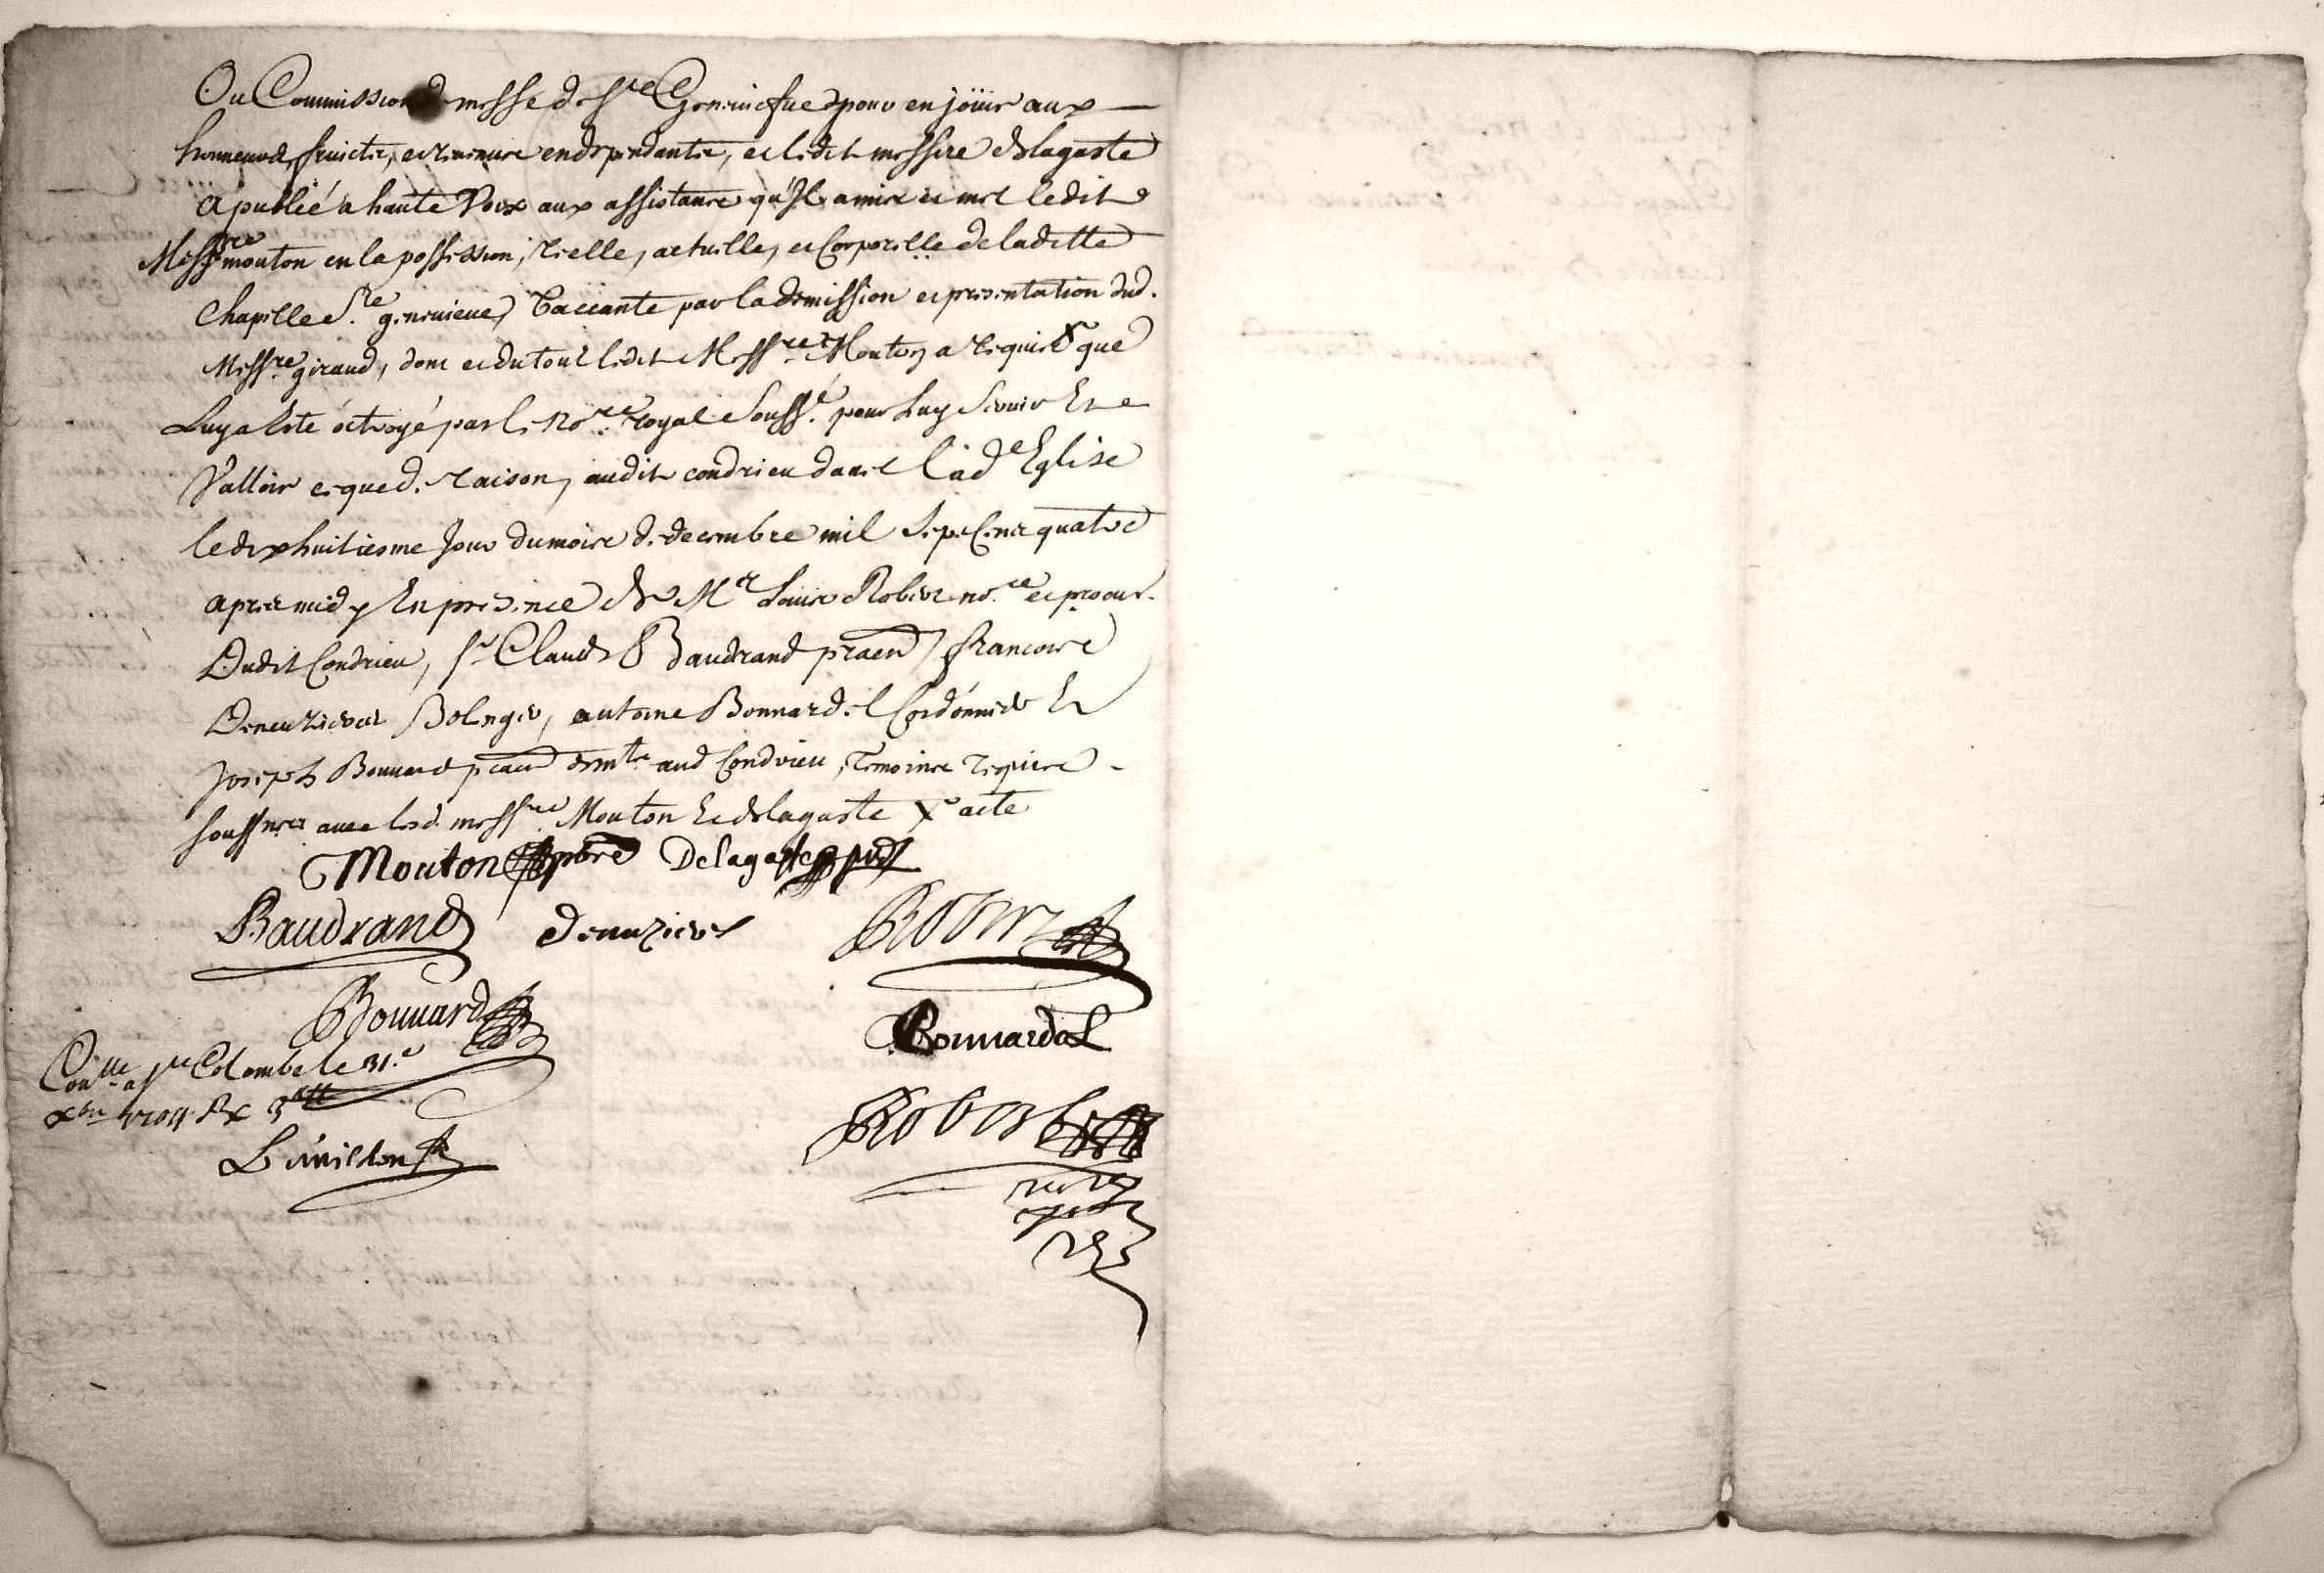 Ou Commission de messe de Ste Geneuiefue pour en joüir aux
honneurs, fruicts, et reuenus en dependants, et ledit messire delagaste
a publié a haute Voix aux assistans qu'Il a mis et met ledit
Messre mouton en la possession, réelle, actuelle, et Corporelle de ladette
Chapelle Ste geneuieue, Vaccante par la démission et présentation dud.
Messre giraud, dont et du tout ledit Messre Mouton a requis acte que
Luy a Esté óctroyé par le Nore royal Soussé. pour Luy Seruir Et
Valloir ce que de raison, audit condrieu dans Lade Eglise
le dixhuitiesme Jour du mois de decembre mil Sept Cent quatre
apres midy En presence de Mr Louis Robert nore. et procur.
Dudit Condrieu, sr Claude Baudrand praen francois
Deneuzieres Bolenger, antoine Bonnardel Cordónnier Et
Joseph Bonnard praen demts aud Condrieu, Temoins requis
soussnés auec lesd. messres Mouton Et delagaste acte
Mouton pbre Delagaste
Baudrand Denuzieres Robert
Bonnard
Bonnardel
Conlle a Ste Colombe le 31e
xbre 1704 Rx
Robert